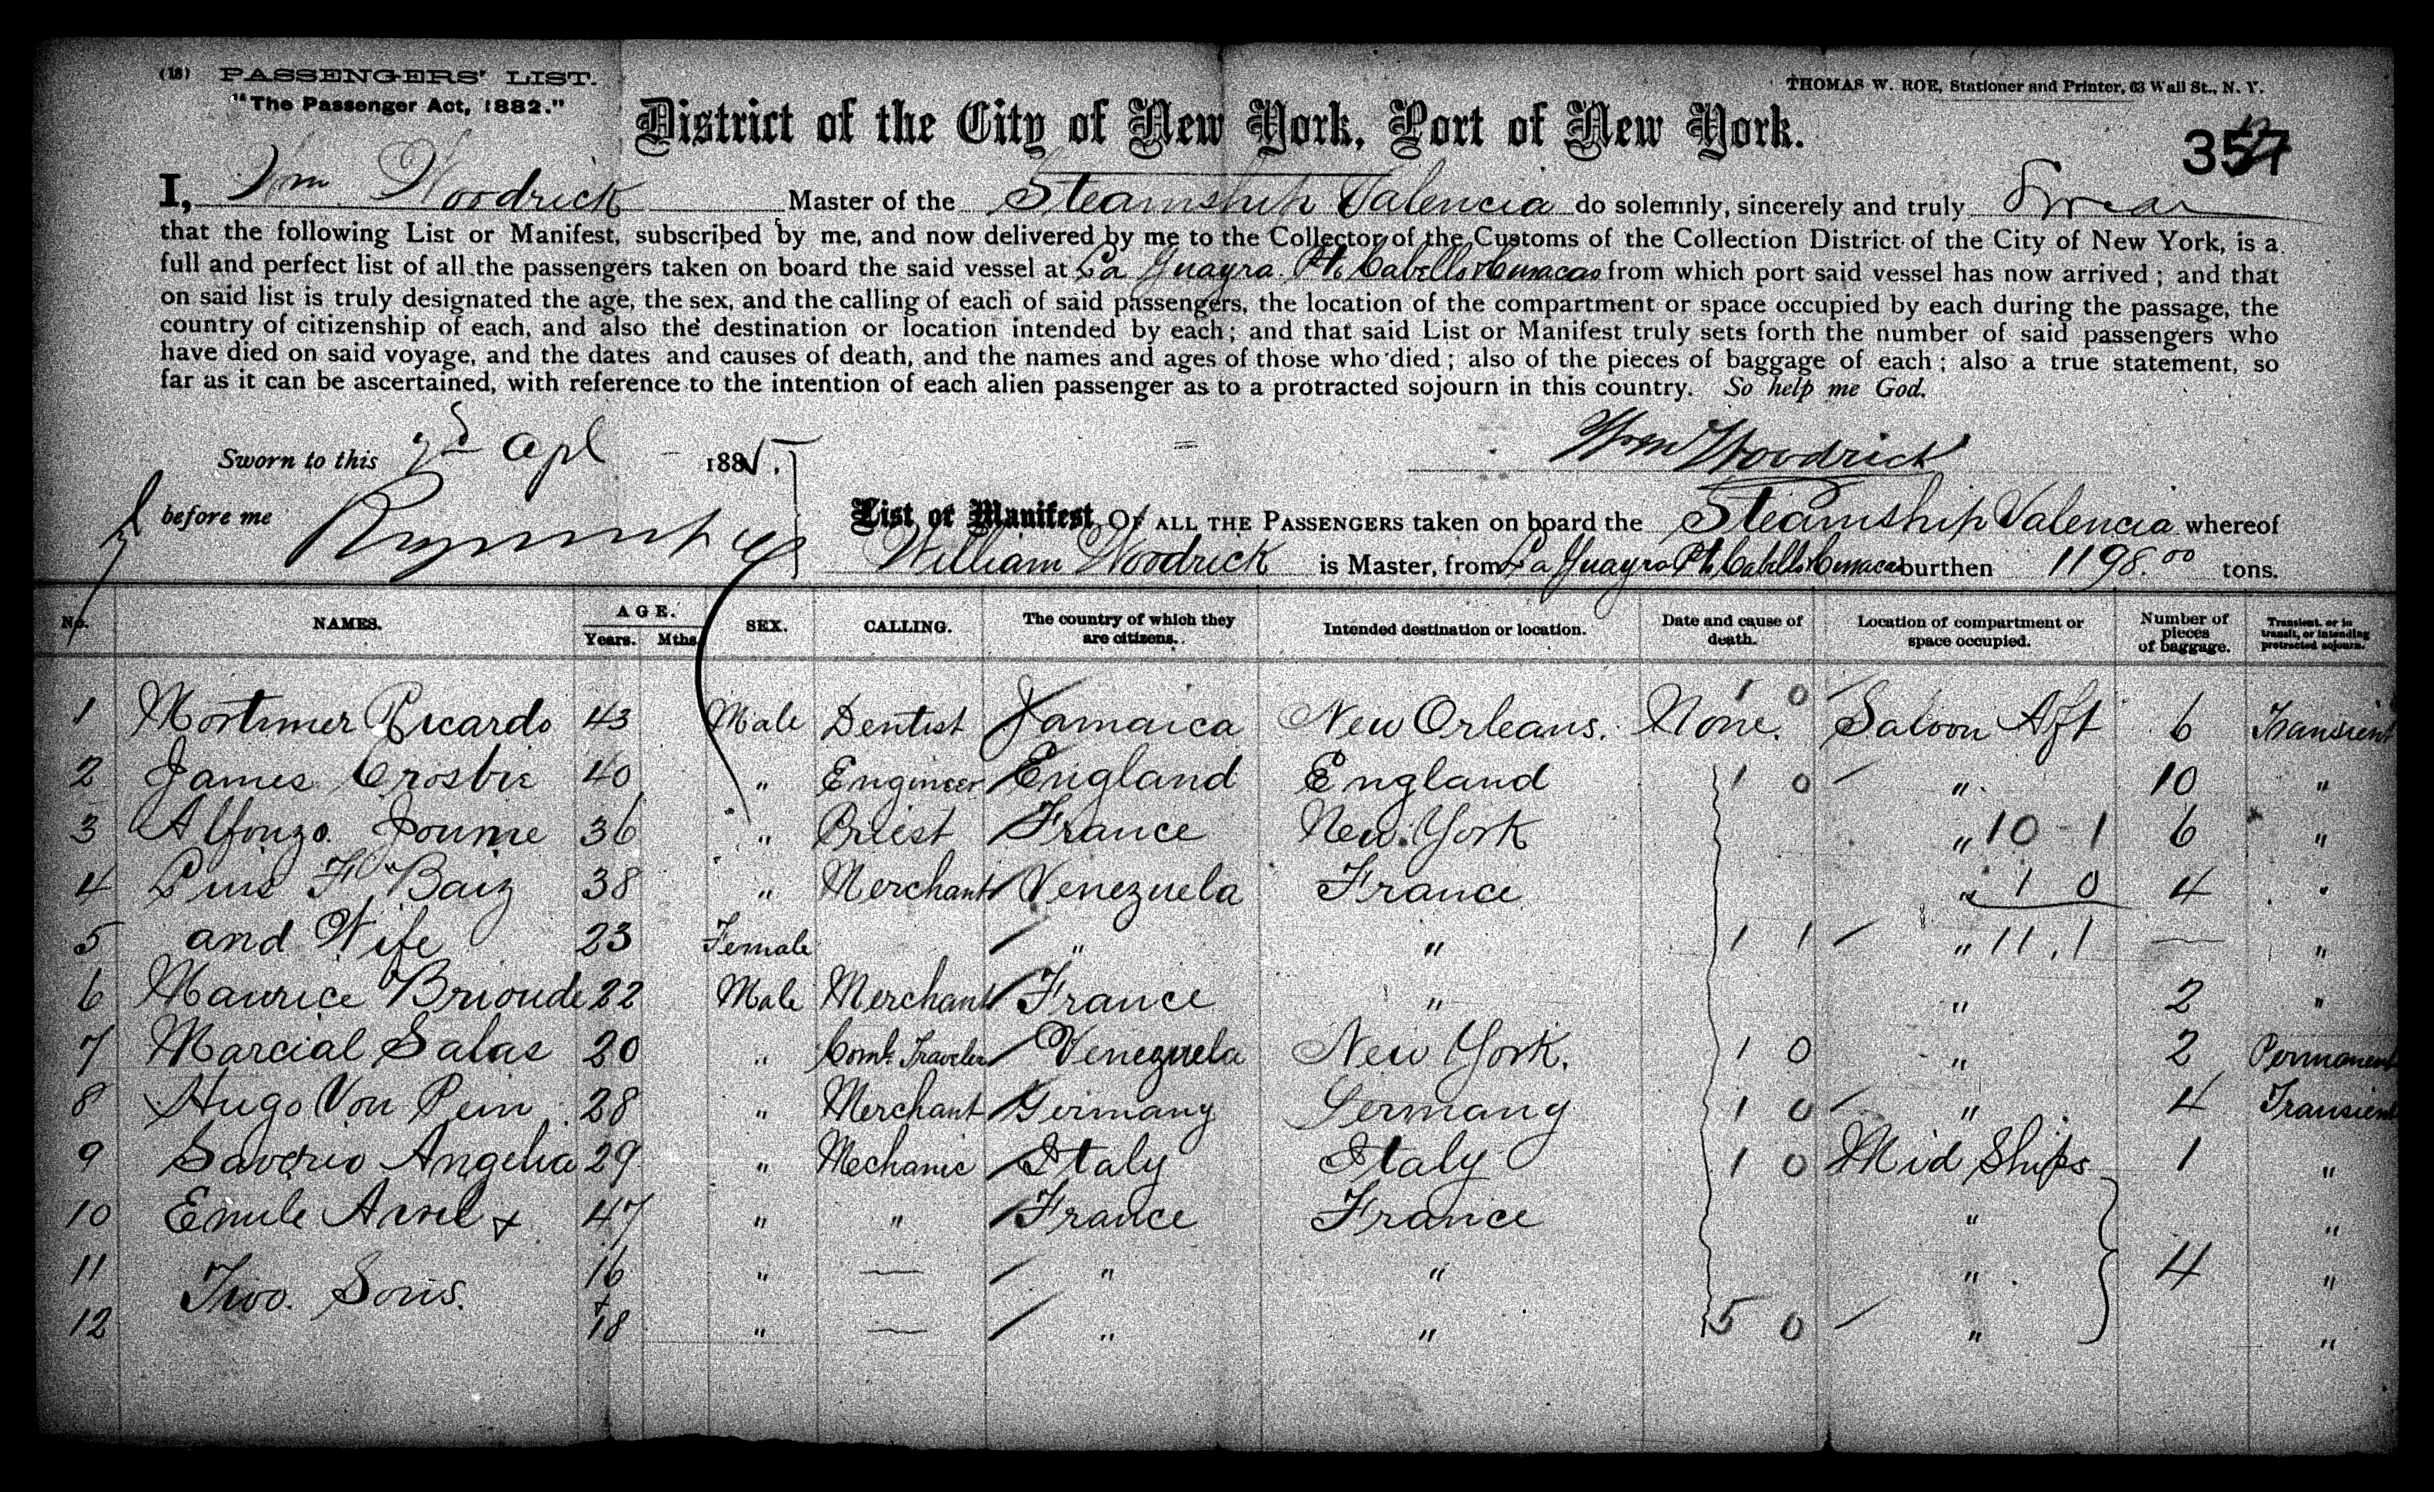 (18) PASSENGERS' LIST.
"The Passenger Act, 1882."
THOMAS W. ROE, Stationer and Printer, 63 Wall St., N. Y.
District of the City of New York, Port of New York.
357
I, Wm Woodrick Master of the Steamship Valencia do solemnly, sincerely and truly Swear
that the following List or Manifest, subscribed by me, and now delivered by me to the Collector of the Customs of the Collection District of the City of New York, is a
full and perfect list of all the passengers taken on board the said vessel at La Guayra Pto Cabello & Curacao from which port said vessel has now arrived; and that
on said list is truly designated the age, the sex, and the calling of each of said passengers, the location of the compartment or space occupied by each during the passage, the
country of citizenship of each, and also the destination or location intended by each; and that said List or Manifest truly sets forth the number of said passengers who
have died on said voyage, and the dates and causes of death, and the names and ages of those who died; also of the pieces of baggage of each; also a true statement, so
far as it can be ascertained, with reference to the intention of each alien passenger as to a protracted sojourn in this country. So help me God.
Sworn to this apl 1885. Wm Woodrick
before me
List or Manifest OF ALL THE PASSENGERS taken on board the Steamship Valencia whereof
William Woodrick is Master, from La Guayra Pto Cabello & Curacao burthen 1198.00 tons.
No. NAMES. AGE. Years. Mths. SEX. CALLING. The country of which they are citizens. Intended destination or location. Date and cause of death. Location of compartment or space occupied. Number of pieces of baggage. Transient, or in transit, or intending protracted sojourn.
1 Mortimer Ricardo 43 Male Dentist Jamaica New Orleans. None. 1 0 Saloon Aft 6 Transient
2 James Crosbie 40 " Engineer England England 1 0 " 10 "
3 Alfonzo 36 " Priest France New York " 10 - 1 6 "
4 Luis F. Baiz 38 " Merchant Venezuela France " 1 0 4 "
5 and Wife 23 Female " " 1 1 " 11.1 — "
6 Maurice Brioude 22 Male Merchant France " " 2 "
7 Marcial Salas 20 " Coml. Traveler Venezuela New York. 1 0 " 2 Permanent
8 Hugo Von Pein 28 " Merchant Germany Germany 1 0 " 4 Transient
9 Saverio Angelia 29 " Mechanic Italy Italy 1 0 Mid Ships 1 "
10 Emile & 47 " " France France " "
11 Two Sons. 16 " — " " " 4 "
12 & 18 " — " " 5 0 " "